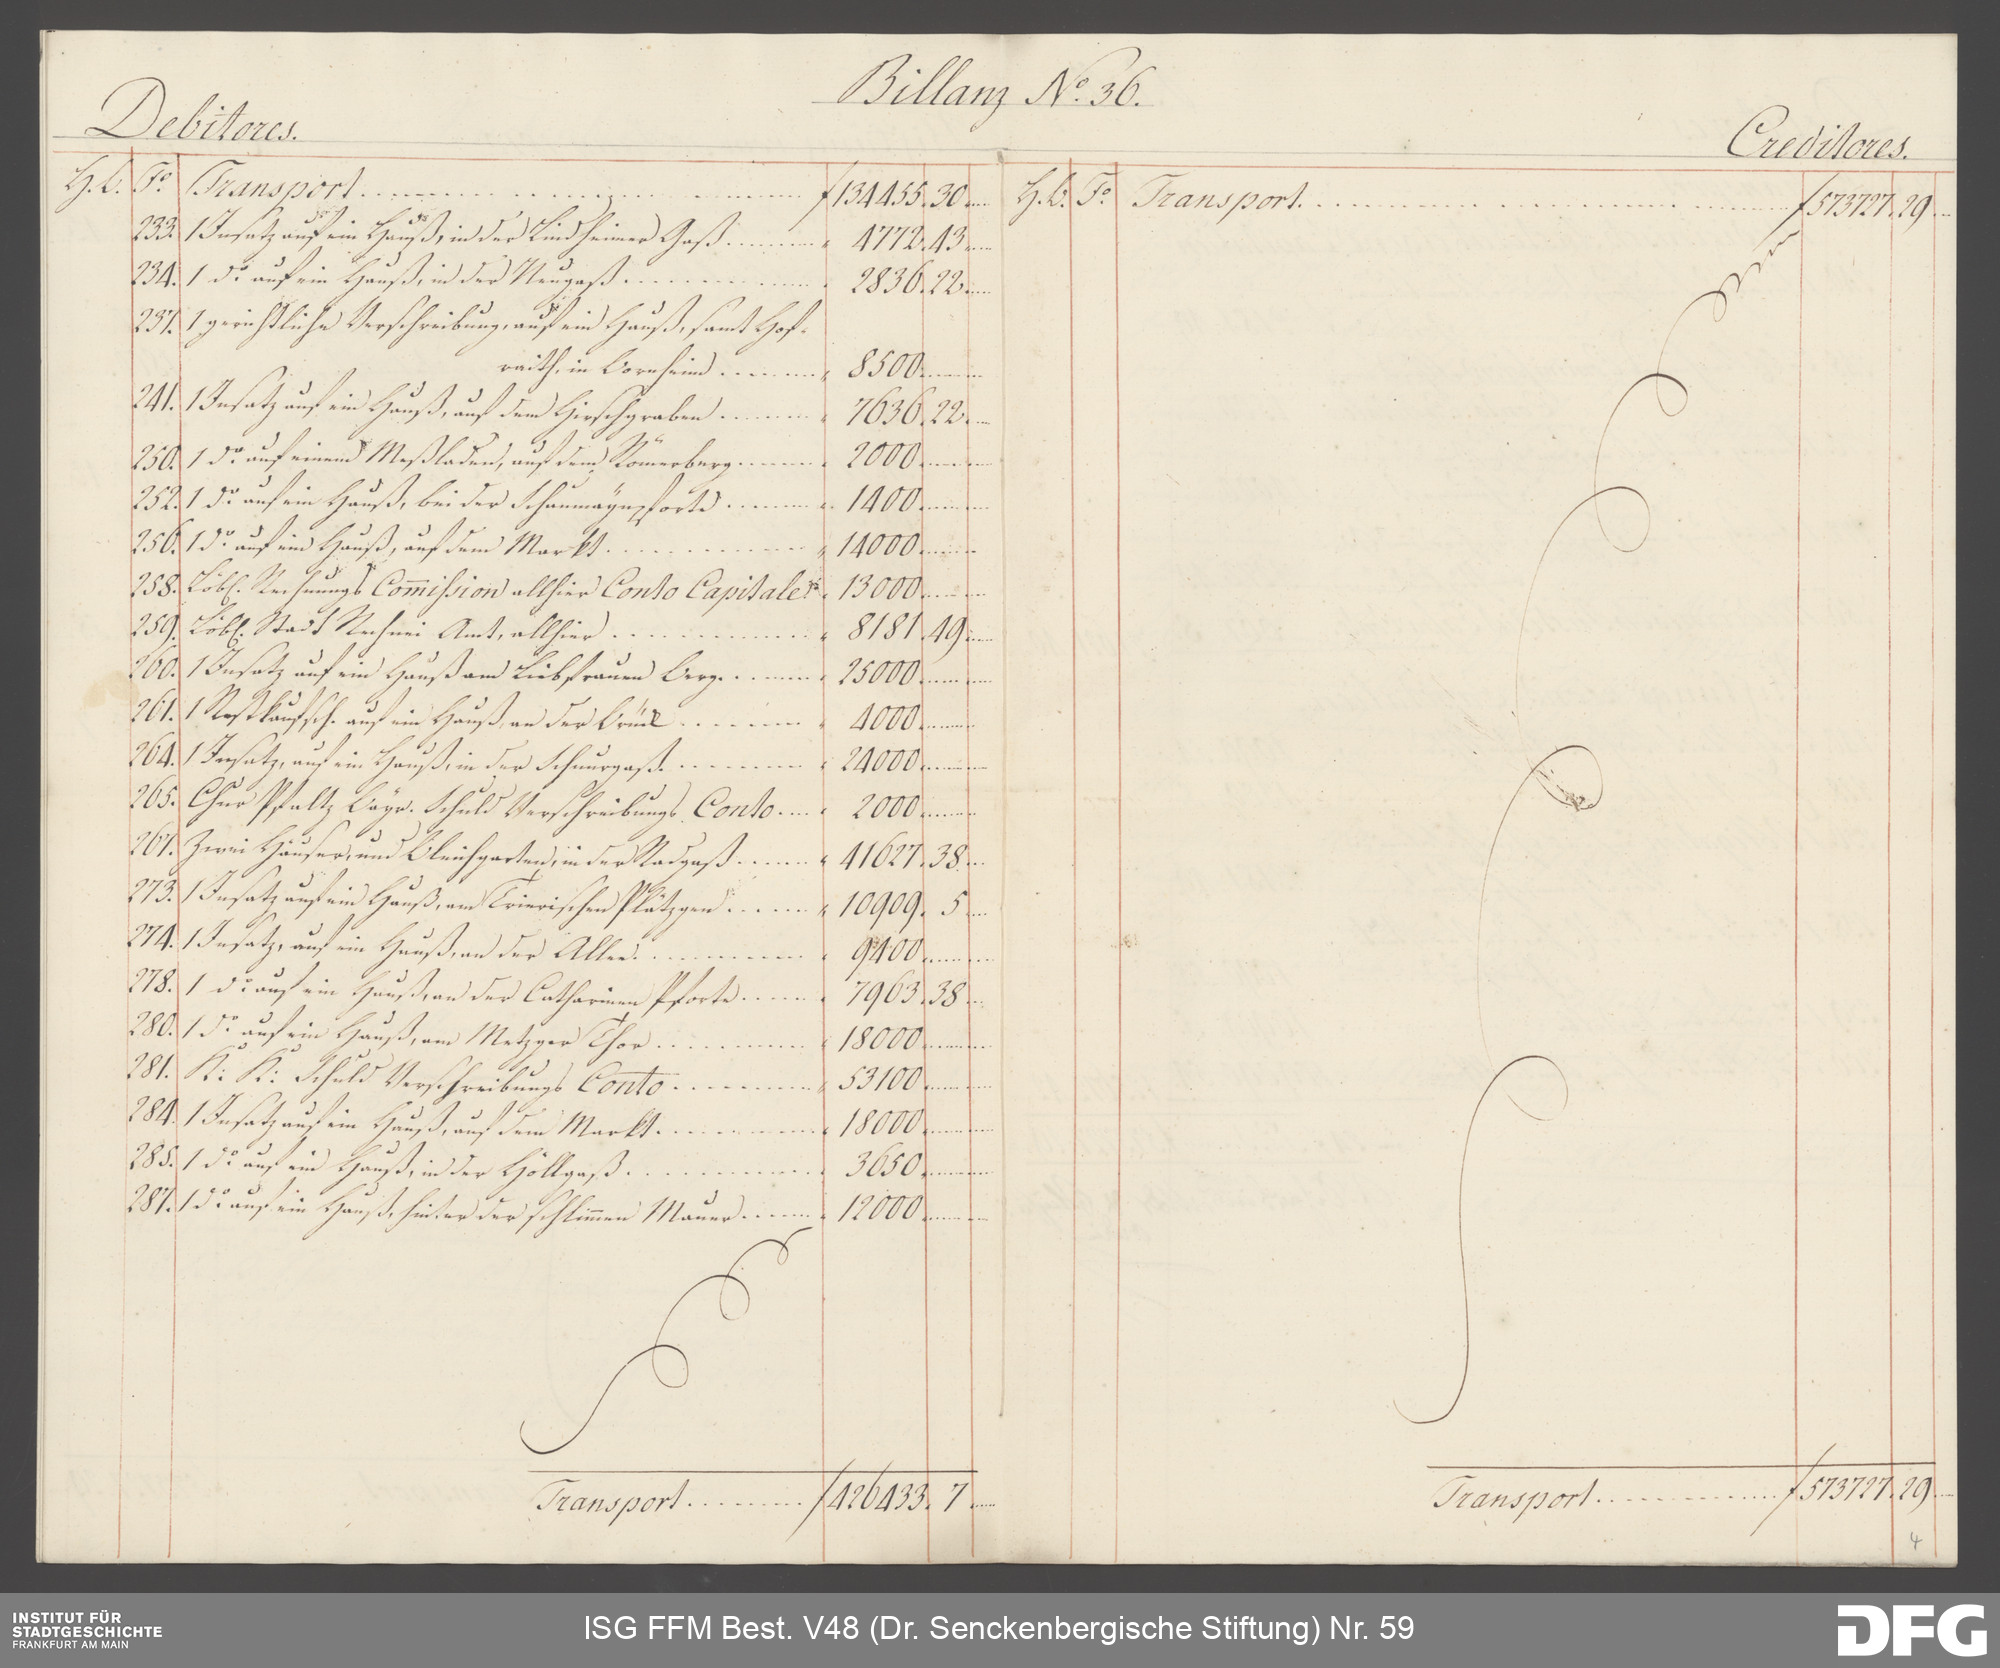 Billanz No. 36.
Debitores.
H.b. Fo. Transport f 134455. 30
233. 1 Insatz auf ein Hauß, in der Lindheimer Gaß 4772. 43
234. 1 do. auf ein Hauß, in der Neugaß 2836. 22
237. 1 gerichtliche Verschreibung, auf ein Hauß, samt Hof-
raith, in Bornheim 8500
241. 1 Insatz auf ein Hauß, auf dem Hirschgraben 7636. 22
250. 1 do. auf einem Meßladen, auf dem Römerberg 2000
252. 1 do. auf ein Hauß, bei der Schaumaynpforte 1400
256. 1 do. auf ein Hauß, auf dem Markt 14000
258. Löbl. Rechnungs Commission allhier Conto Capitale 13000
259. Löbl. Stadt Rechnei Amt, allhier 8181. 49
260. 1 Insatz auf ein Hauß am Liebfrauen Berg 25000
261. 1 Restkaufsch. auf ein Hauß, an der Brück 4000
264. 1 Insatz, auf ein Hauß, in der Schnurgaß 24000
265. Chur Pfaltz Bayr. Schuld Verschreibungs Conto 2000
267. Zwei Häuser, und Bleichgarten, in der Radgaß 41627. 38
273. 1 Insatz auf ein Hauß, am Trierischen Plätzgen 10909. 5
274. 1 Insatz, auf ein Hauß, an der Allee 9400
278. 1 do. auf ein Hauß, an der Catharinen Pforte 7963. 38
280. 1 do. auf ein Hauß, am Metzger Thor 18000
281. K: K: Schuld Verschreibungs Conto 53100
284. 1 Insatz auf ein Hauß, auf dem Markt 18000
285. 1 do. auf ein Hauß, in der Höllgaß 3650
287. 1 do. auf ein Hauß, hinter der schlimmen Mauer 12000
Transport f 426433. 7
Creditores.
H.b. Fo. Transport f 573727. 29
Transport f 573727. 29
4
INSTITUT FÜR
STADTGESCHICHTE
FRANKFURT AM MAIN
ISG FFM Best. V48 (Dr. Senckenbergische Stiftung) Nr. 59
DFG